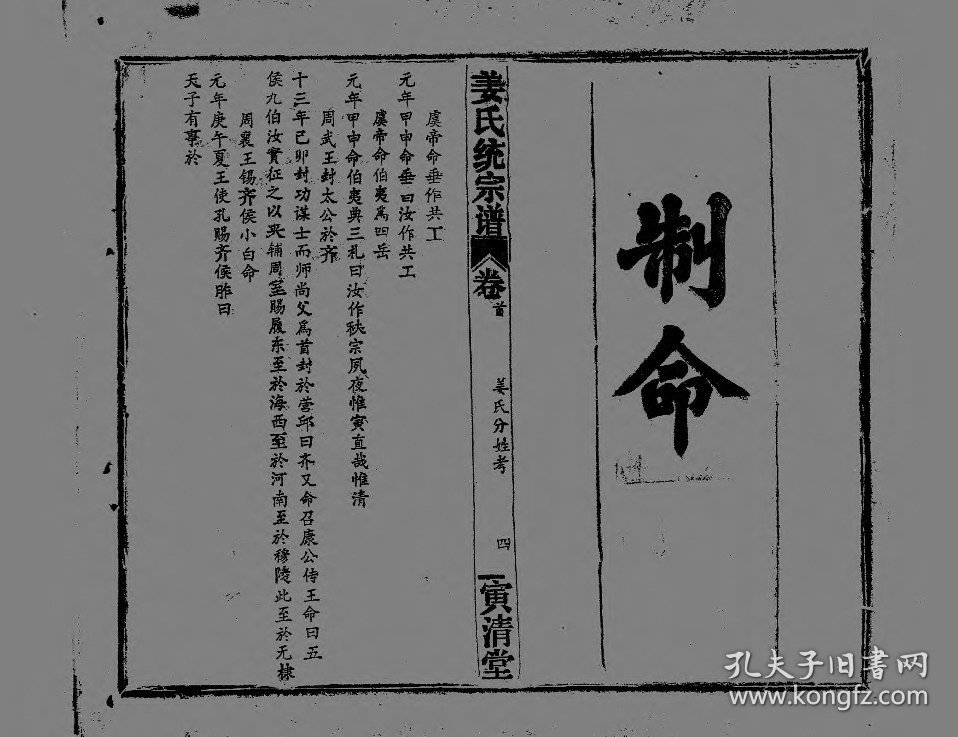 制命
姜氏统宗谱
卷首
姜氏分姓考
四
寅清堂
虞帝命垂作共工
元年甲申命垂曰汝作共工
虞帝命伯夷為四岳
元年甲申命伯夷典三礼曰汝作秩宗夙夜惟寅直哉惟清
周武王封太公於齐
十三年己卯封功谋士而师尚父為首封於营邱曰齐又命召康公传王命曰五
侯九伯汝實征之以夾辅周室賜履东至於海西至於河南至於穆陵此至於无棣
周襄王锡齐侯小白命
元年庚午夏王使孔赐齐侯胙曰
天子有事於
孔夫子旧書网
www.kongfz.com